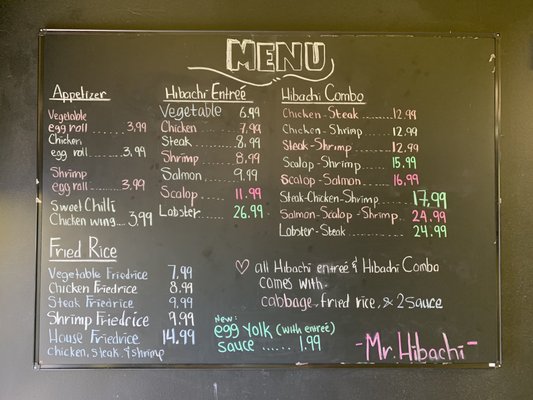 MENU
Appetizer
Vegetable
egg roll ........ 3.99
Chicken
egg roll ....... 3.99
Shrimp
egg roll ........ 3.99
Sweet Chilli
Chicken wing .... 3.99
Fried Rice
Vegetable Friedrice 7.99
Chicken Friedrice 8.99
Steak Friedrice 9.99
Shrimp Friedrice 9.99
House Friedrice 14.99
Chicken, steak, & shrimp
Hibachi Entreé
Vegetable 6.99
Chicken ........ 7.99
Steak ........ 8.99
Shrimp ........ 8.99
Salmon ........ 9.99
Scalop ........ 11.99
Lobster ........ 26.99
Hibachi Combo
Chicken-Steak ........ 12.99
Chicken-Shrimp ........ 12.99
Steak-Shrimp ........ 12.99
Scalop-Shrimp ........ 15.99
Scalop-Salmon ........ 16.99
Steak-Chicken-Shrimp ..... 17.99
Salmon-Scalop-Shrimp . 24.99
Lobster-Steak ........ 24.99
♡ all Hibachi entreé & Hibachi Combo
comes with
cabbage, fried rice, & 2 sauce
New:
egg Yolk (with entreé)
sauce ...... 1.99
-Mr. Hibachi-